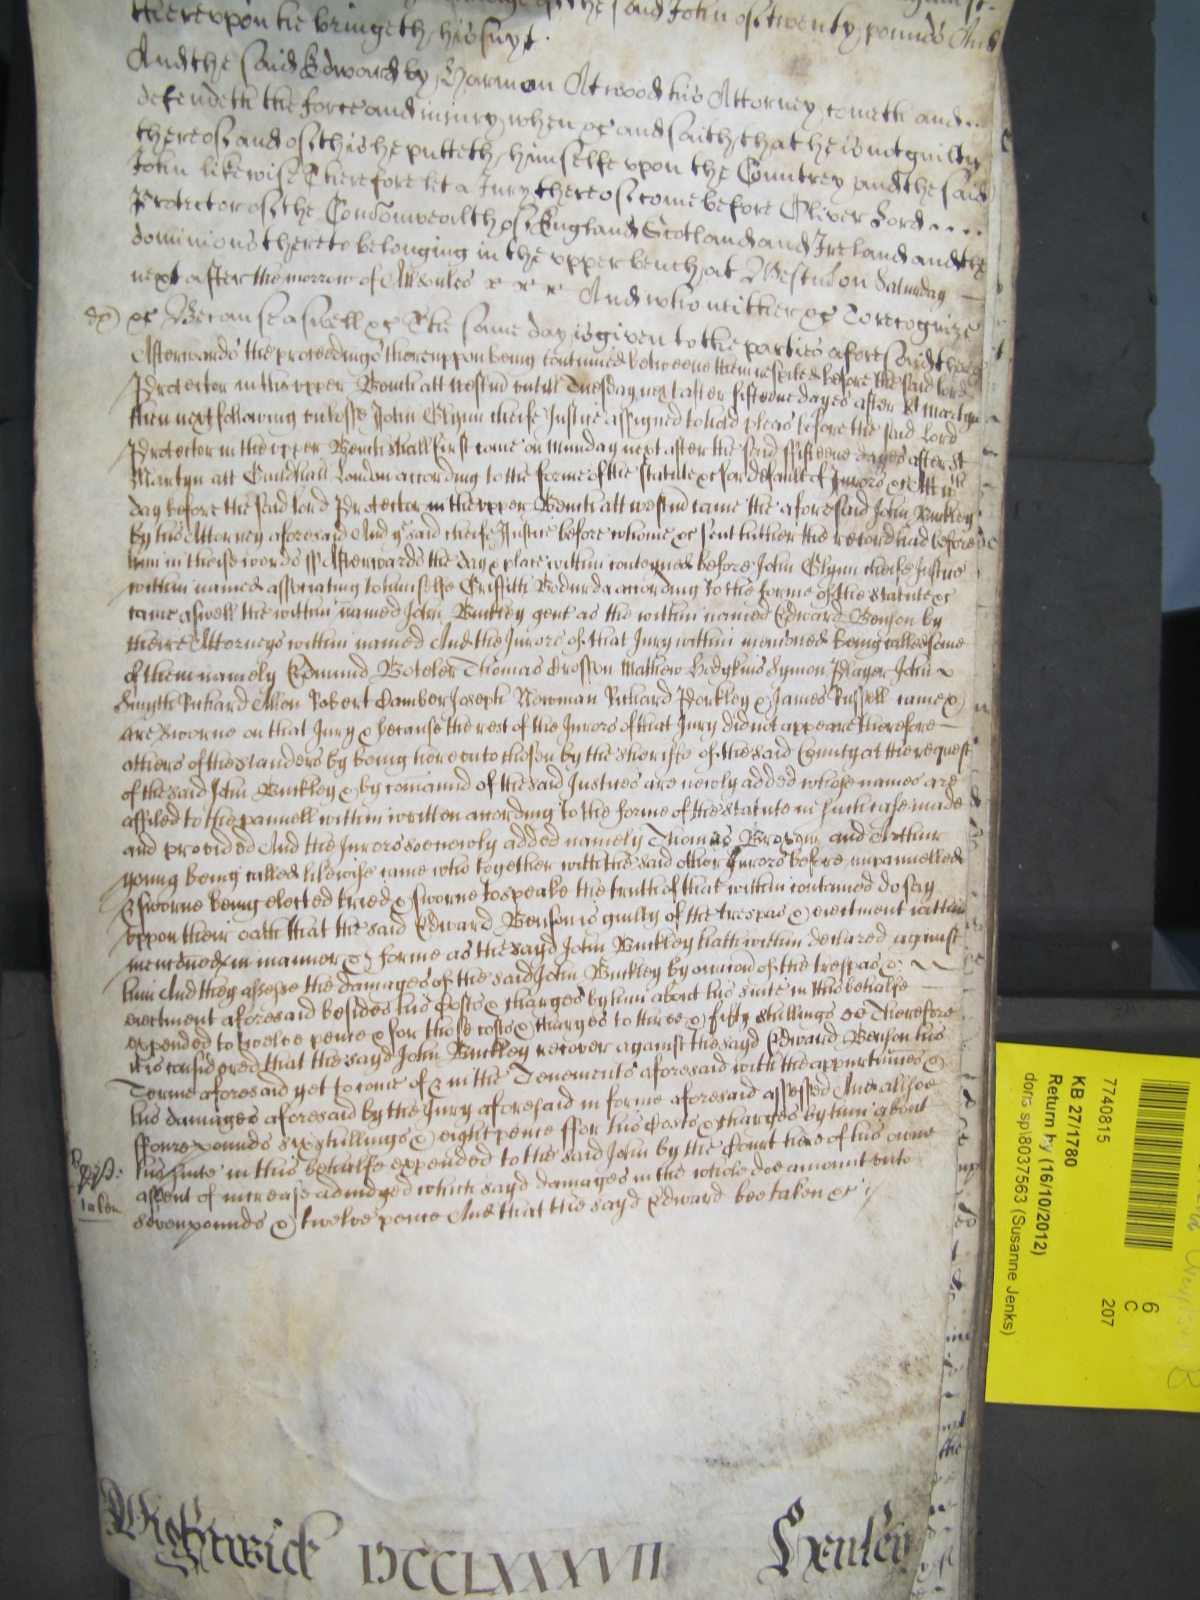 thereupon he bringeth his suyt.
of the said John of twenty pounds And
And the said Edward by Harmon Atwood his Attorney cometh and...
defendeth the force and injury when &c and saith that he is not guilty
thereof and of this he putteth himselfe upon the Countrey and the said
John likewise Therefore let a Jury thereof come before Oliver Lord....
Protector of the Comonwealth of England Scotland and Ireland and the
dominions thereto belonging in the upper bench at Westm̄ on Saturday
next after the morrow of All soules And who neither &c To recognize
&c Because aswell &c The same day is given to the parties aforesaid there
Afterwards the proceedings thereuppon being continued betweene them respited before the said lord
Protector in the upper Bench att westm̄ untill Tuesday next after fifteene dayes after St Martyn
then next following unlesse John Glynn cheife Justice assigned to hold pleas before the said Lord
Protector in the upper Bench shall first come on Munday next after the said fifteene dayes after St
Martyn att Guildhall London according to the forme of the statute &c for default of Jurors &c Att wch
day before the said lord Protector in the upper Bench att westm̄ came the aforesaid John Buckley
by his Attorney aforesaid And ye said cheife Justice before whome &c sent hither the record had before
him in these words ss Afterwards the day & place within conteyned before John Glynn cheife Justice
within named associating to himselfe Griffith Bodurda according to the forme of the statute &c
came aswell the within named John Buckley gent as the within named Edward Benson by
theire Attorneys within named And the Jurors of that Jury within menconed being called some
of them namely Edmund Boteler Thomas Crosson Mathew Hodgkins Symon Player John
Smyth Richard Robert Joseph Nowman Richard & James Russell came &
are sworne on that Jury & because the rest of the Jurors of that Jury did not appeare therefore
others of the standers by being hereunto chosen by the sheriffe of the said County at the request
of the said John Buckley & by comaund of the said Justices are newly added whose names are
affiled to the pannell within written according to the forme of the statute in such case made
and provided And the Jurors soe newly added namely Thomas and Arthur
young being called likewise came who together with the said other Jurors before impannelled
& sworne being elected tried & sworne to speake the truth of that within contained do say
uppon their oath that the said Edward Benson is guilty of the trespas & eiectment within
mencōned in manner & forme as the sayd John Buckley hath within declared against
him And they assesse the damages of the said John Buckley by occacon of the trespas &
eiectment aforesaid besides his costs & charges by him about his suite in this behalfe
expended to twelve pence & for those costs & charges to three & fifty shillings &c Therefore
it is considered that the sayd John Buckley recover against the sayd Edward Benson his
Terme aforesaid yet to come of & in the Tenements aforesaid with the appurtennces &
his damages aforesaid by the Jury aforesaid in forme aforesaid assessed And allsoe
foure pounds six shillings & eight pence for his Costs & charges by him about
his suite in this behalfe expended to the said John by the Court here of his owne
assent of increase adiudged which sayd damages in the whole doe amount unto
seven pounds & twelve pence And that the sayd Edward bee taken &c
taken
Wightwick DCCLXXXVII Henley
7740815
6
C
207
KB 27/1780
Return by (16/10/2012)
doris sp\8037563 (Susanne Jenks)